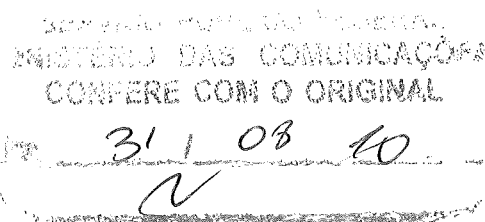 MINISTÉRIO DAS COMUNICAÇÕES
CONFERE COM O ORIGINAL
31 / 08 10